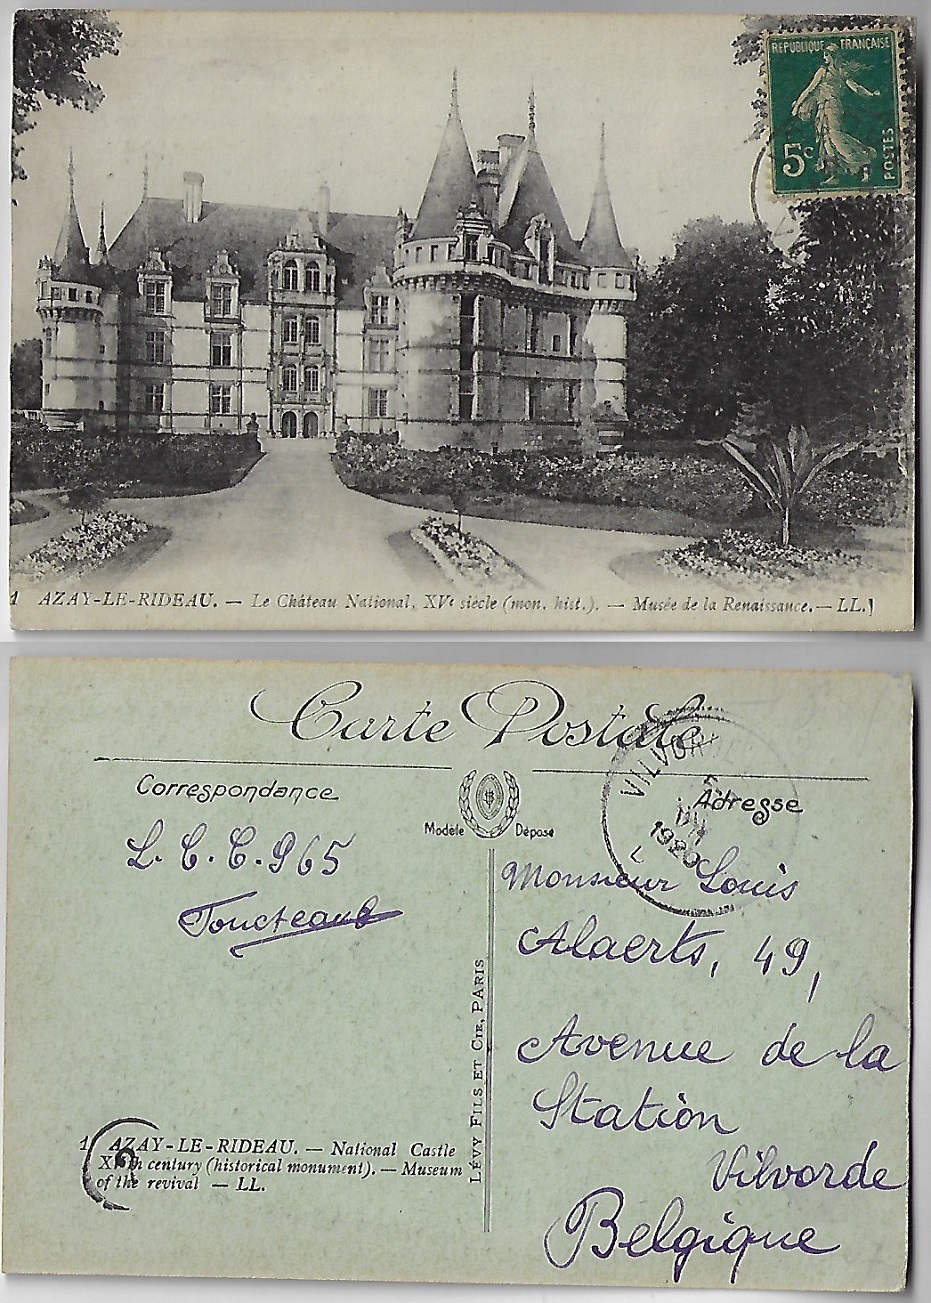 REPUBLIQUE FRANÇAISE
5c
POSTES
1 AZAY-LE-RIDEAU. — Le Château National, XVe siècle (mon. hist.). — Musée de la Renaissance. — LL.
Carte Postale
Correspondance
Modèle Déposé
Adresse
VILVOR
1920
L. C. C. 965
Toucteau
Monsieur Louis
Alaerts, 49,
Avenue de la
Station
Vilvorde
Belgique
LÉVY FILS ET CIE, PARIS
1 AZAY-LE-RIDEAU. — National Castle
XVth century (historical monument). — Museum
of the revival — LL.